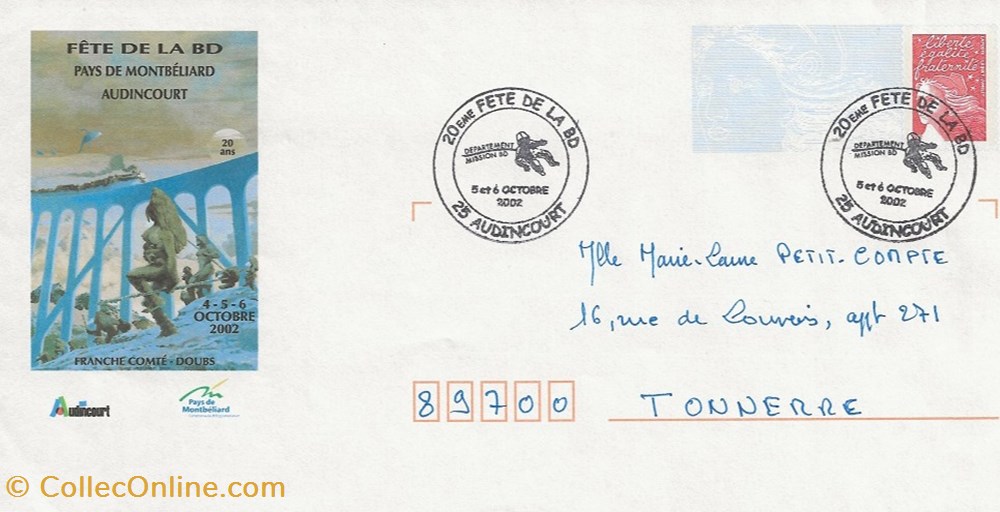 FÊTE DE LA BD
PAYS DE MONTBÉLIARD
AUDINCOURT
20
ans
4 - 5 - 6
OCTOBRE
2002
FRANCHE COMTÉ - DOUBS
Audincourt
Pays de
Montbéliard
20EME FETE DE LA BD
DEPARTEMENT
MISSION BD
5 et 6 OCTOBRE
2002
25 AUDINCOURT
liberté
égalité
fraternité
20EME FETE DE LA BD
DEPARTEMENT
MISSION BD
5 et 6 OCTOBRE
2002
25 AUDINCOURT
Mlle Marie-Laure PETIT-COMPTE
16, rue de Louvois, appt 271
89700 TONNERRE
© CollecOnline.com